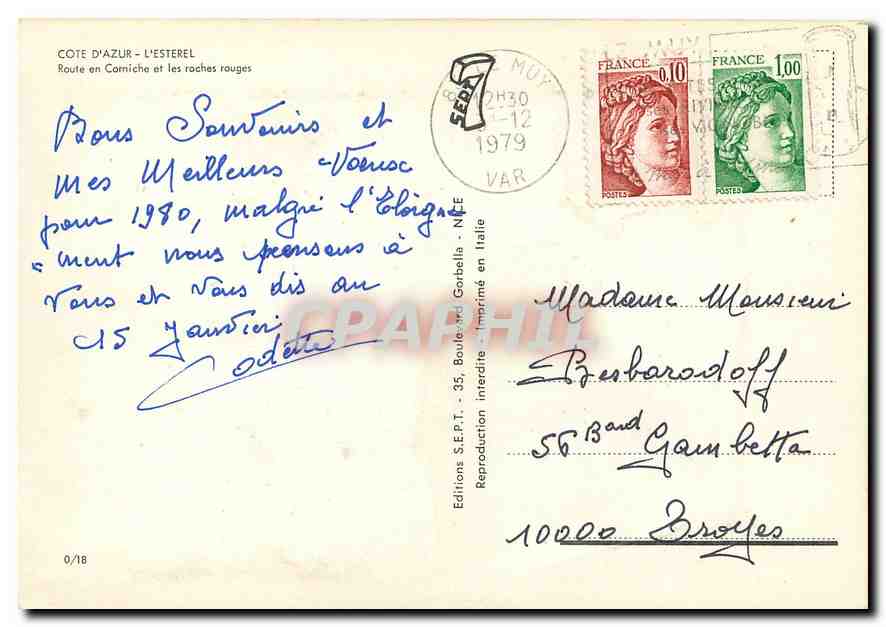 COTE D'AZUR - L'ESTEREL
Route en Corniche et les roches rouges
Bons Souvenirs et
mes Meilleurs Voeux
pour 1980, malgré l'Eloigne
"ment nous pensons à
Vous et Vous dis au
15 Janvier
Odette
0/18
Editions S.E.P.T. - 35, Boulevard Gorbella - NICE
Reproduction interdite - Imprimé en Italie
SEPT
MUY
12H30
-12
1979
VAR
LE MUY
FRANCE
0,10
POSTES
FRANCE
1,00
POSTES
CPAPHIL
Madame Monsieur
Besbarodoff
56 Bard Gambetta
10000 Troyes